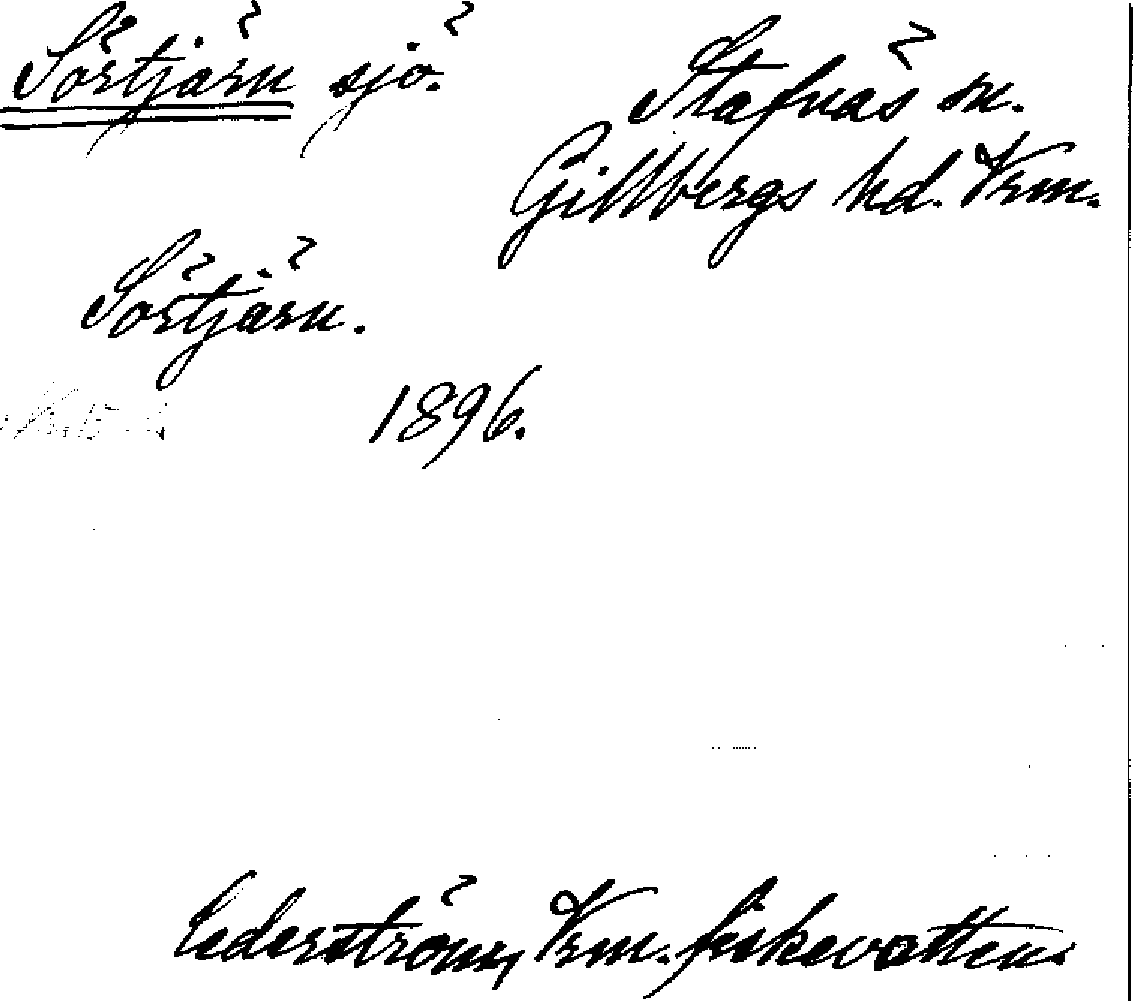 Sörtjärn sjö.
Stafnäs sn.
Gillbergs hd. Vrm.
Sörtjärn.
1896.
Cederström, Vrm. fiskevatten.